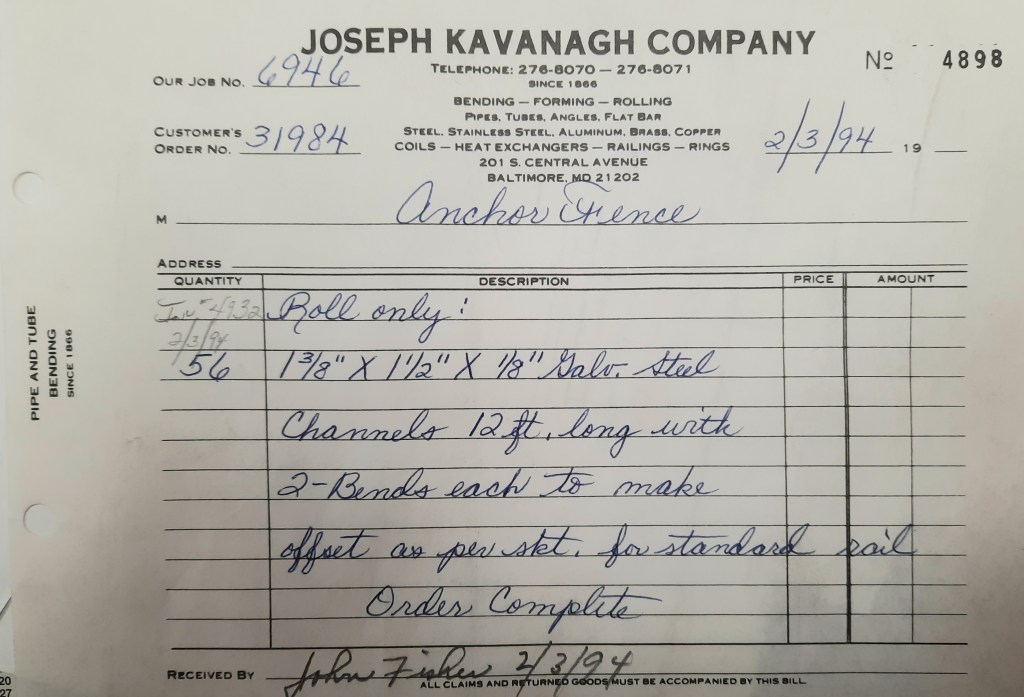 JOSEPH KAVANAGH COMPANY
TELEPHONE: 276-8070 — 276-8071
SINCE 1866
BENDING — FORMING — ROLLING
PIPES, TUBES, ANGLES, FLAT BAR
STEEL, STAINLESS STEEL, ALUMINUM, BRASS, COPPER
COILS — HEAT EXCHANGERS — RAILINGS — RINGS
201 S. CENTRAL AVENUE
BALTIMORE, MD 21202
Nº 4898
OUR JOB NO. 6946
CUSTOMER'S ORDER NO. 31984
2/3/94 19
M Anchor Fence
ADDRESS
QUANTITY DESCRIPTION PRICE AMOUNT
Inv. # 4932 Roll only:
2/3/94
56 1 3/8" X 1 1/2" X 1/8" Galv. Steel
Channels 12 ft. long with
2-Bends each to make
offset as per skt. for standard rail
Order Complete
RECEIVED BY John Fisher 2/3/94
ALL CLAIMS AND RETURNED GOODS MUST BE ACCOMPANIED BY THIS BILL.
PIPE AND TUBE
BENDING
SINCE 1866
20
27